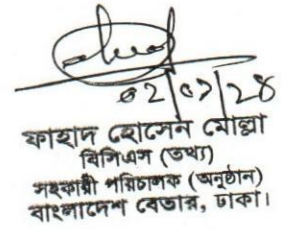 ০২/০৭/২৪
ফাহাদ হোসেন মোল্লা
বিসিএস (তথ্য)
সহকারী পরিচালক (অনুষ্ঠান)
বাংলাদেশ বেতার, ঢাকা।